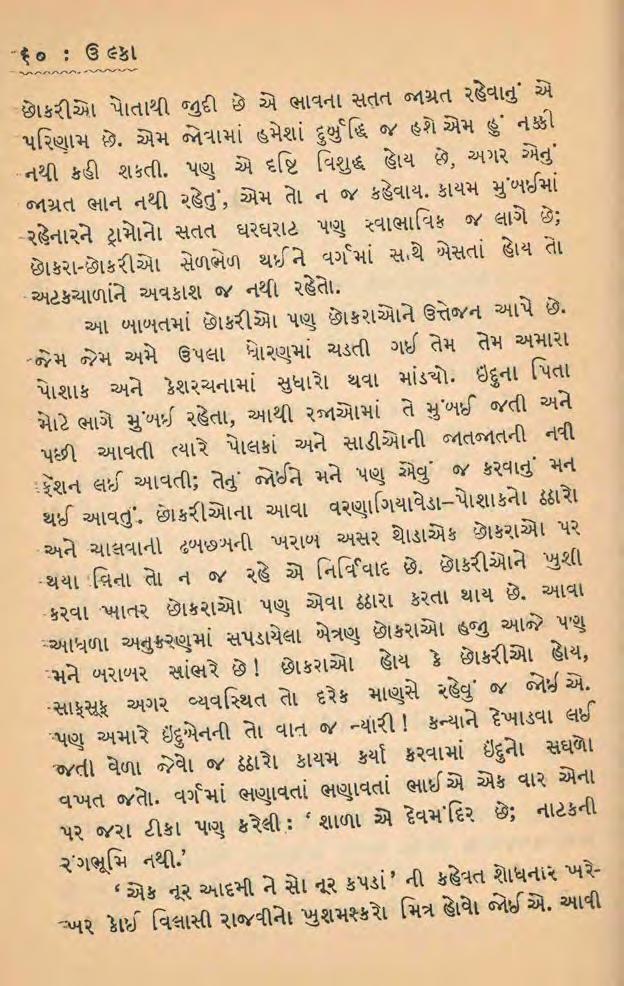 ૬૦ : ઉલ્કા
છોકરીઓ પોતાથી જુદી છે એ ભાવના સતત જાગ્રત રહેવાનું એ
પરિણામ છે. એમ જોવામાં હમેશાં દુર્બુદ્ધિ જ હશે એમ હું નક્કી
નથી કહી શકતી. પણ એ દૃષ્ટિ વિશુદ્ધ હોય છે, અગર એનું
જાગ્રત ભાન નથી રહેતું, એમ તો ન જ કહેવાય. કાયમ મુંબઈમાં
રહેનારને ટ્રામોનો સતત ઘરઘરાટ પણ સ્વાભાવિક જ લાગે છે;
છોકરા-છોકરીઓ સેળભેળ થઈને વર્ગમાં સાથે બેસતાં હોય તો
અટકચાળાંને અવકાશ જ નથી રહેતો.
આ બાબતમાં છોકરીઓ પણ છોકરાઓને ઉત્તેજન આપે છે.
જેમ જેમ અમે ઉપલા ધોરણમાં ચડતી ગઈ તેમ તેમ અમારા
પોશાક અને કેશરચનામાં સુધારો થવા માંડ્યો. ઇંદુના પિતા
મોટે ભાગે મુંબઈ રહેતા, આથી રજાઓમાં તે મુંબઈ જતી અને
પછી આવતી ત્યારે પોલકાં અને સાડીઓની જાતજાતની નવી
ફેશન લઈ આવતી; તેનું જોઈને મને પણ એવું જ કરવાનું મન
થઈ આવતું. છોકરીઓના આવા વરણાગિયાવેડા–પોશાકનો ઠઠારો
અને ચાલવાની ઢબછબની ખરાબ અસર થોડાએક છોકરાઓ પર
થયા વિના તો ન જ રહે એ નિર્વિવાદ છે. છોકરીઓને ખુશી
કરવા ખાતર છોકરાઓ પણ એવા ઠઠારા કરતા થાય છે. આવા
આંધળા અનુકરણમાં સપડાયેલા બેત્રણ છોકરાઓ હજુ આજે પણ
મને બરાબર સાંભરે છે! છોકરાઓ હોય કે છોકરીઓ હોય,
સાફસૂફ અગર વ્યવસ્થિત તો દરેક માણસે રહેવું જ જોઈએ.
પણ અમારે ઇંદુબેનની તો વાત જ ન્યારી! કન્યાને દેખાડવા લઈ
જતી વેળા જેવો જ ઠઠારો કાયમ કર્યા કરવામાં ઇંદુનો સઘળો
વખત જતો. વર્ગમાં ભણાવતાં ભણાવતાં ભાઈએ એક વાર એના
પર જરા ટીકા પણ કરેલી : ‘શાળા એ દેવમંદિર છે; નાટકની
રંગભૂમિ નથી.’
‘એક નૂર આદમી ને સો નૂર કપડાં’ ની કહેવત શોધનાર ખરે-
ખર કોઈ વિલાસી રાજવીનો ખુશમસ્કરો મિત્ર હોવો જોઈએ. આવી